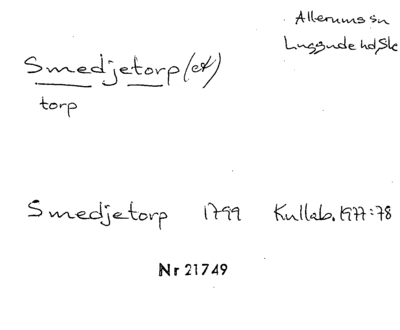 Allerums sn
Luggude hd, Sk
Smedjetorp (et)
torp
Smedjetorp 1799 Kullab. 1977:78
Nr 21749